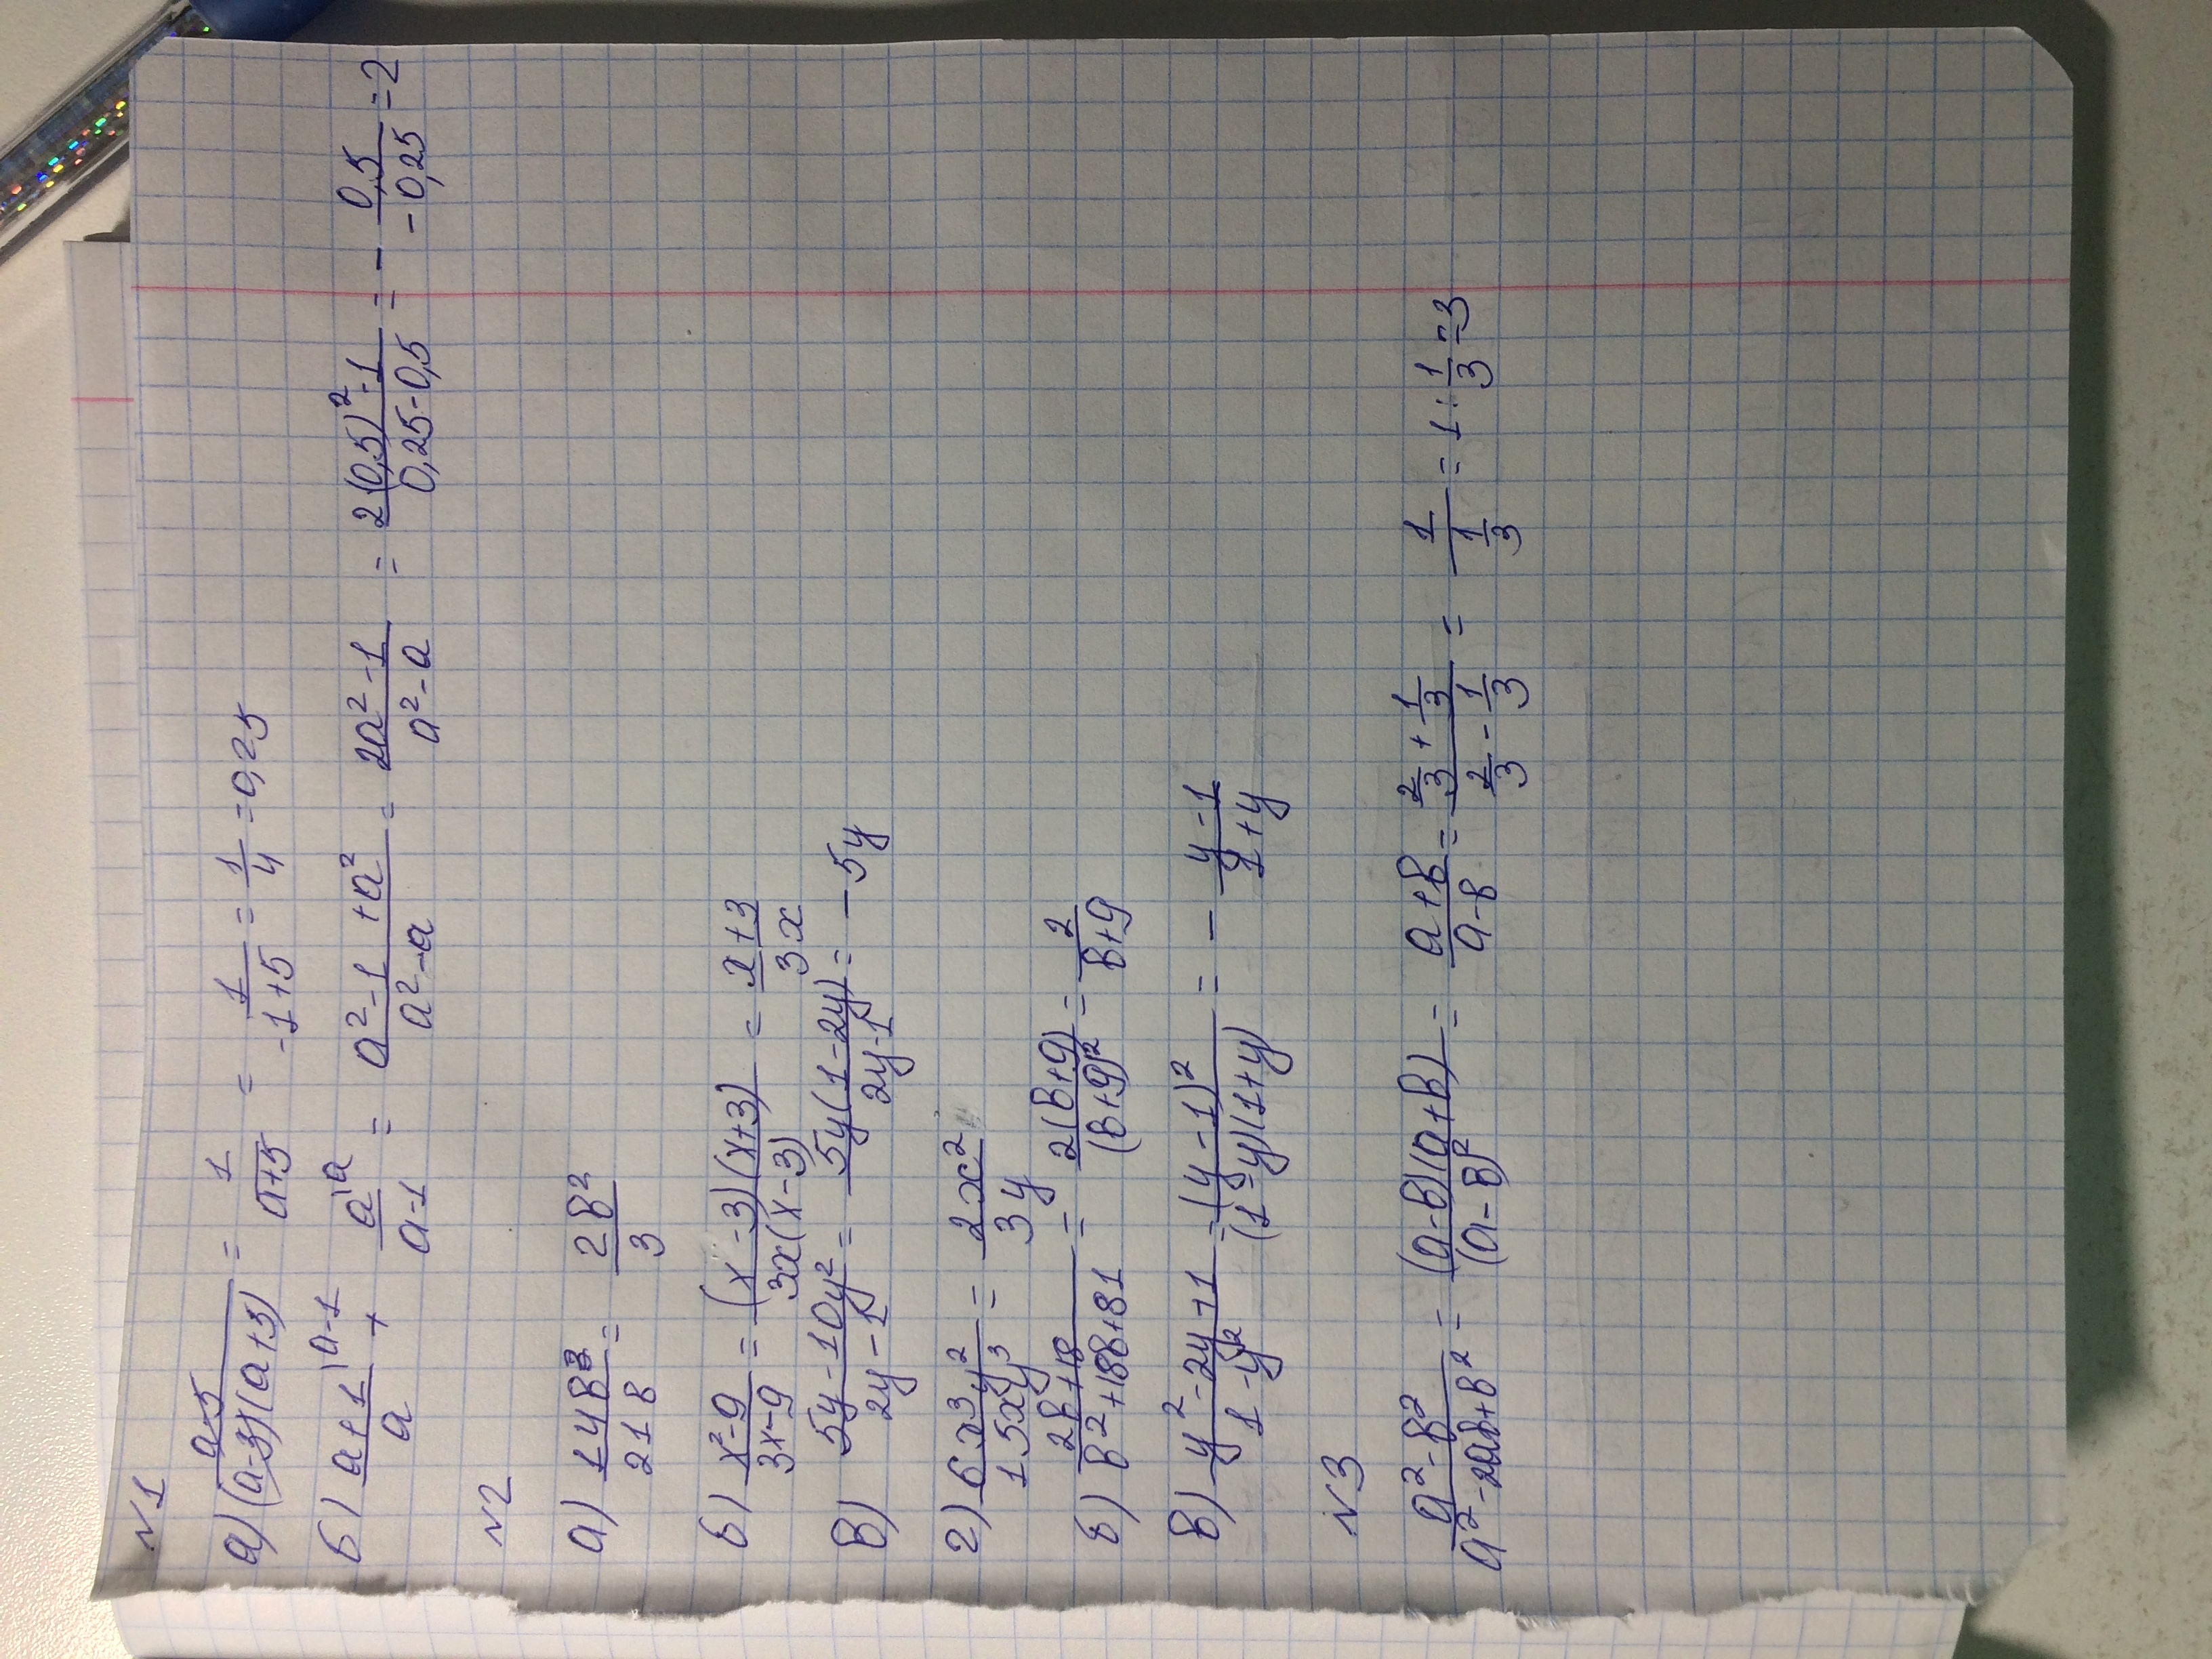 N1
а) (a-5)/((a-3)(a+3)) = 1/(a+5) = 1/(-1+5) = 1/4 = 0,25
б) (a+1)/a ^(a-1) + a/(a-1) ^(a) = (a²-1+a²)/(a²-a) = (2a²-1)/(a²-a) = (2(0,5)²-1)/(0,25-0,5) = - 0,5/(-0,25) = 2
N2
а) 14в³/21в = 2в²/3
б) (x²-9)/(3x-9) = ((x-3)(x+3))/(3x(x-3)) = (x+3)/(3x)
в) (5y-10y²)/(2y-1) = (5y(1-2y))/(2y-1) = -5y
г) 6x³y²/1.5xy³ = 2x²/3y
б) (2в+18)/(в²+18в+81) = (2(в+9))/(в+9)² = 2/(в+9)
в) (y²-2y+1)/(1-y²) = (y-1)²/((1-y)(1+y)) = - (y-1)/(1+y)
N3
(a²-в²)/(a²-2ав+в²) = ((a-в)(a+в))/(a-в)² = (a+в)/(a-в) = (2/3+1/3)/(2/3-1/3) = 1/(1/3) = 1:1/3=3